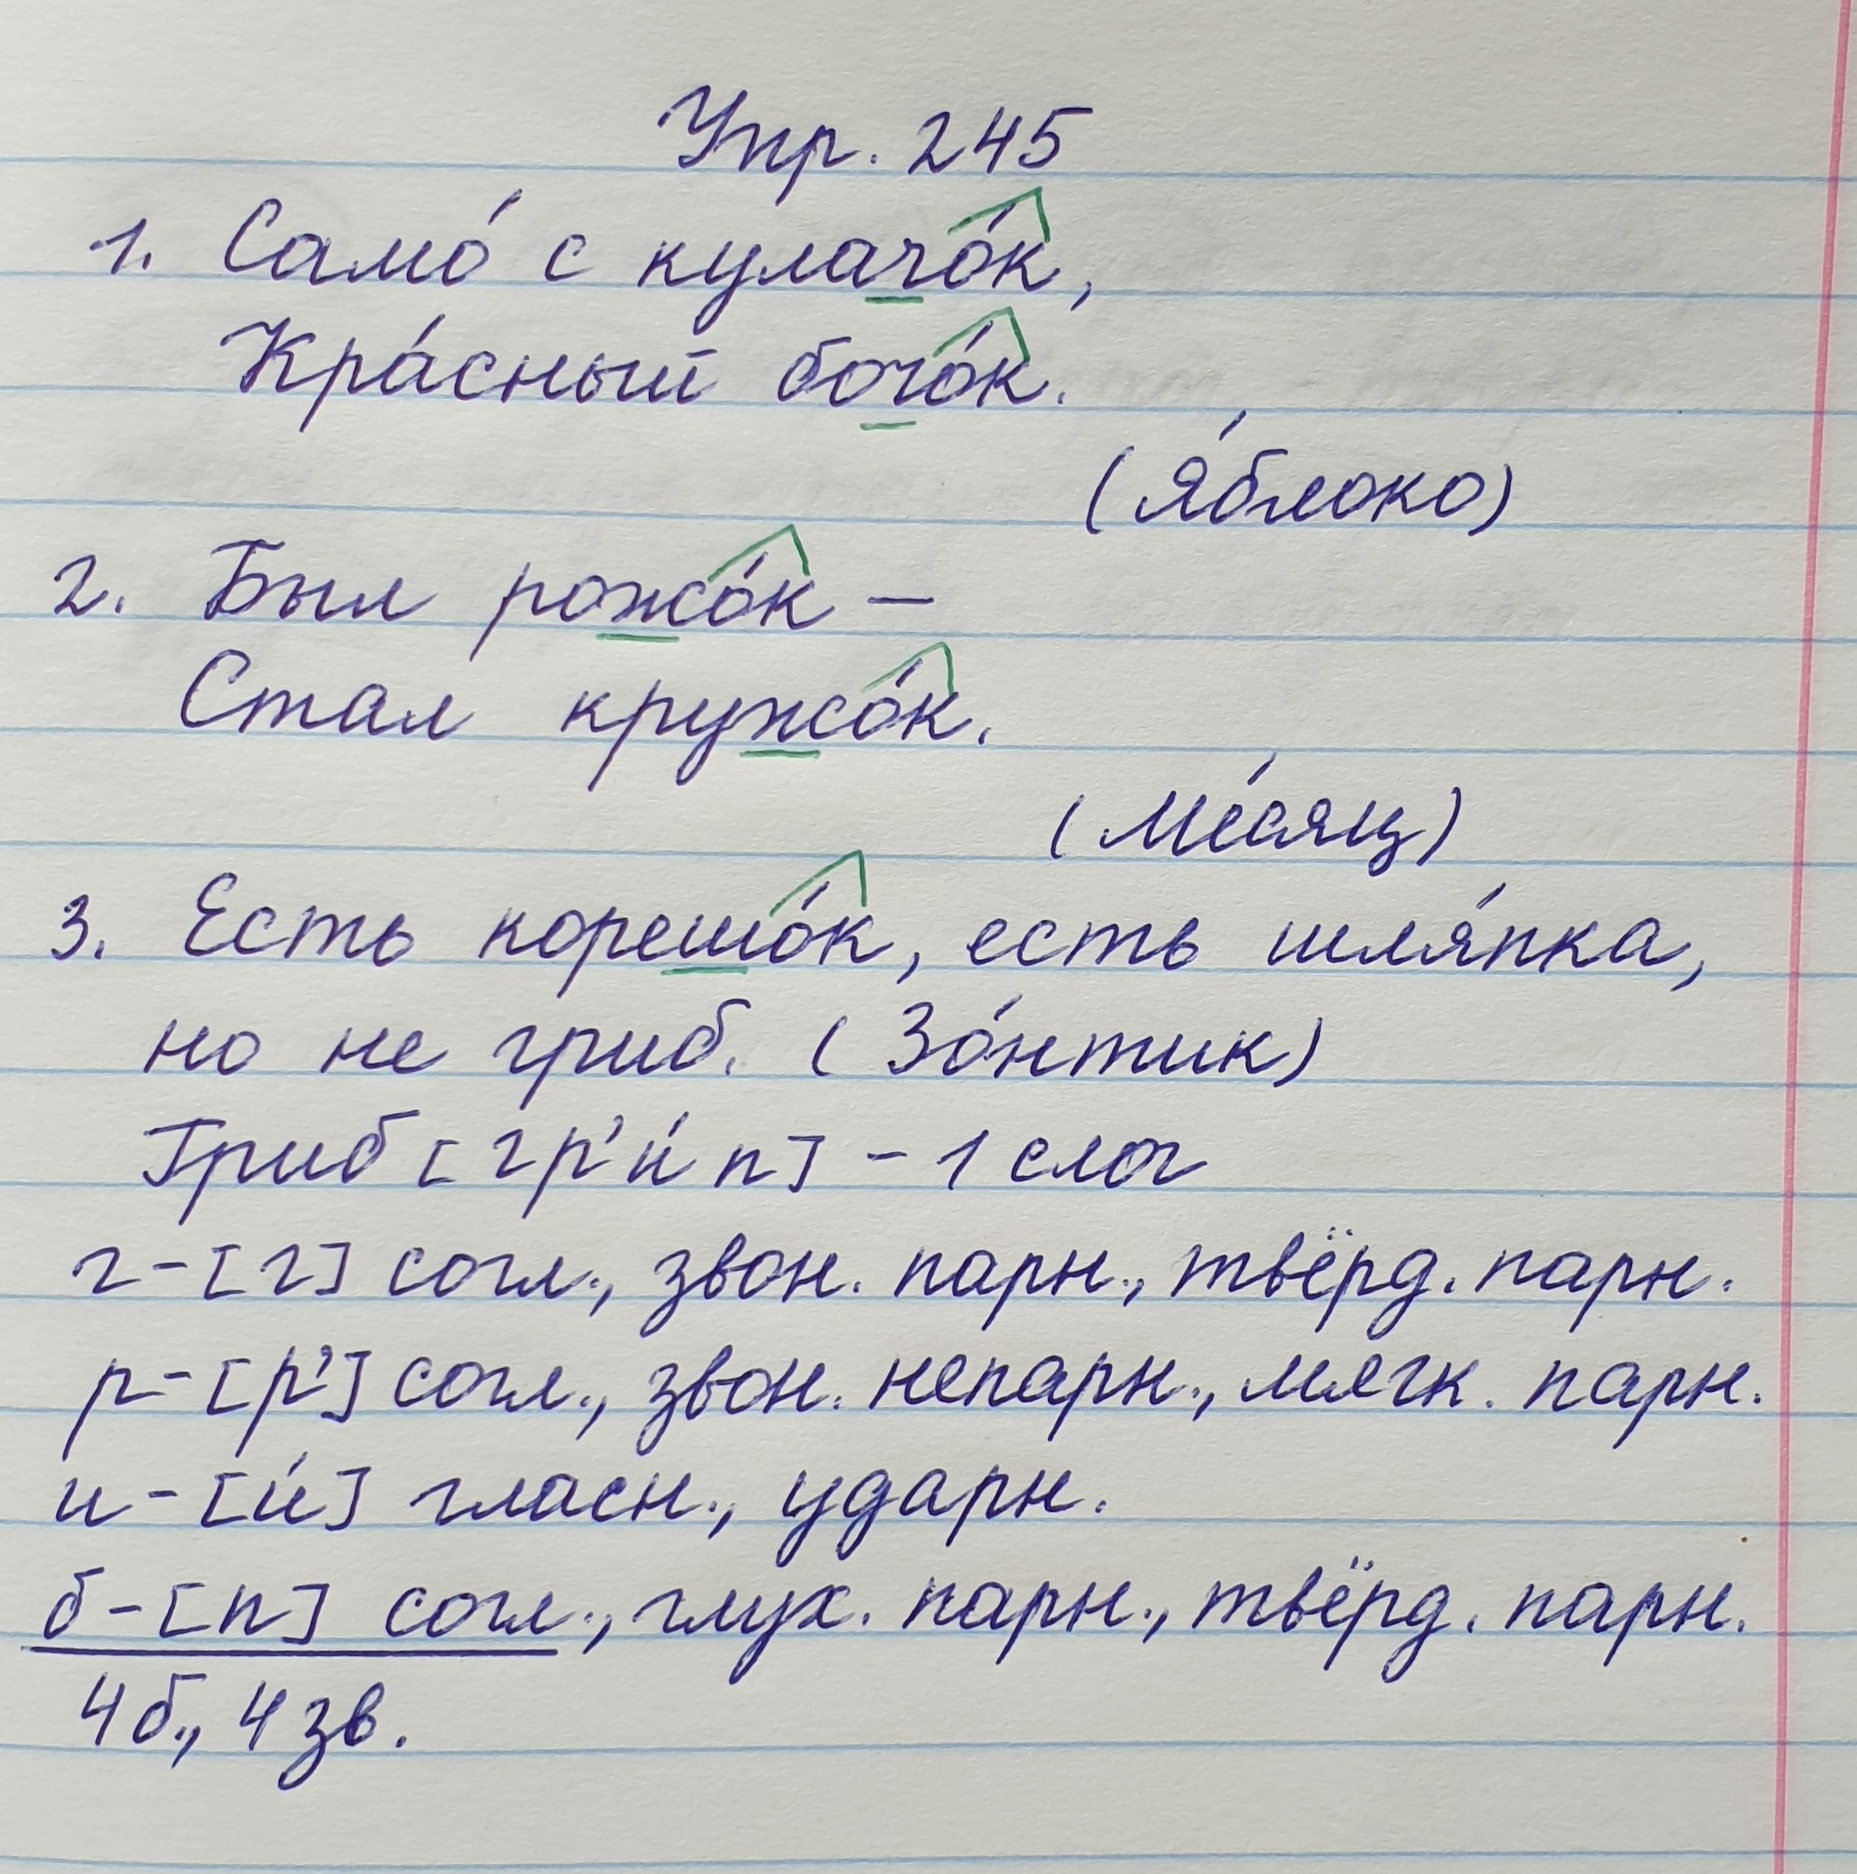 Упр. 245
1. Само́ с кулачо́к,
Кра́сный бочо́к.
(Я́блоко)
2. Был рожо́к –
Стал кружо́к.
(Ме́сяц)
3. Есть корешо́к, есть шля́пка,
но не гриб. (Зо́нтик)
Гриб [гр'и́п] – 1 слог
г – [г] согл., звон. парн., твёрд. парн.
р – [р'] согл., звон. непарн., мягк. парн.
и – [и́] гласн., ударн.
б – [п] согл., глух. парн., твёрд. парн.
4 б., 4 зв.